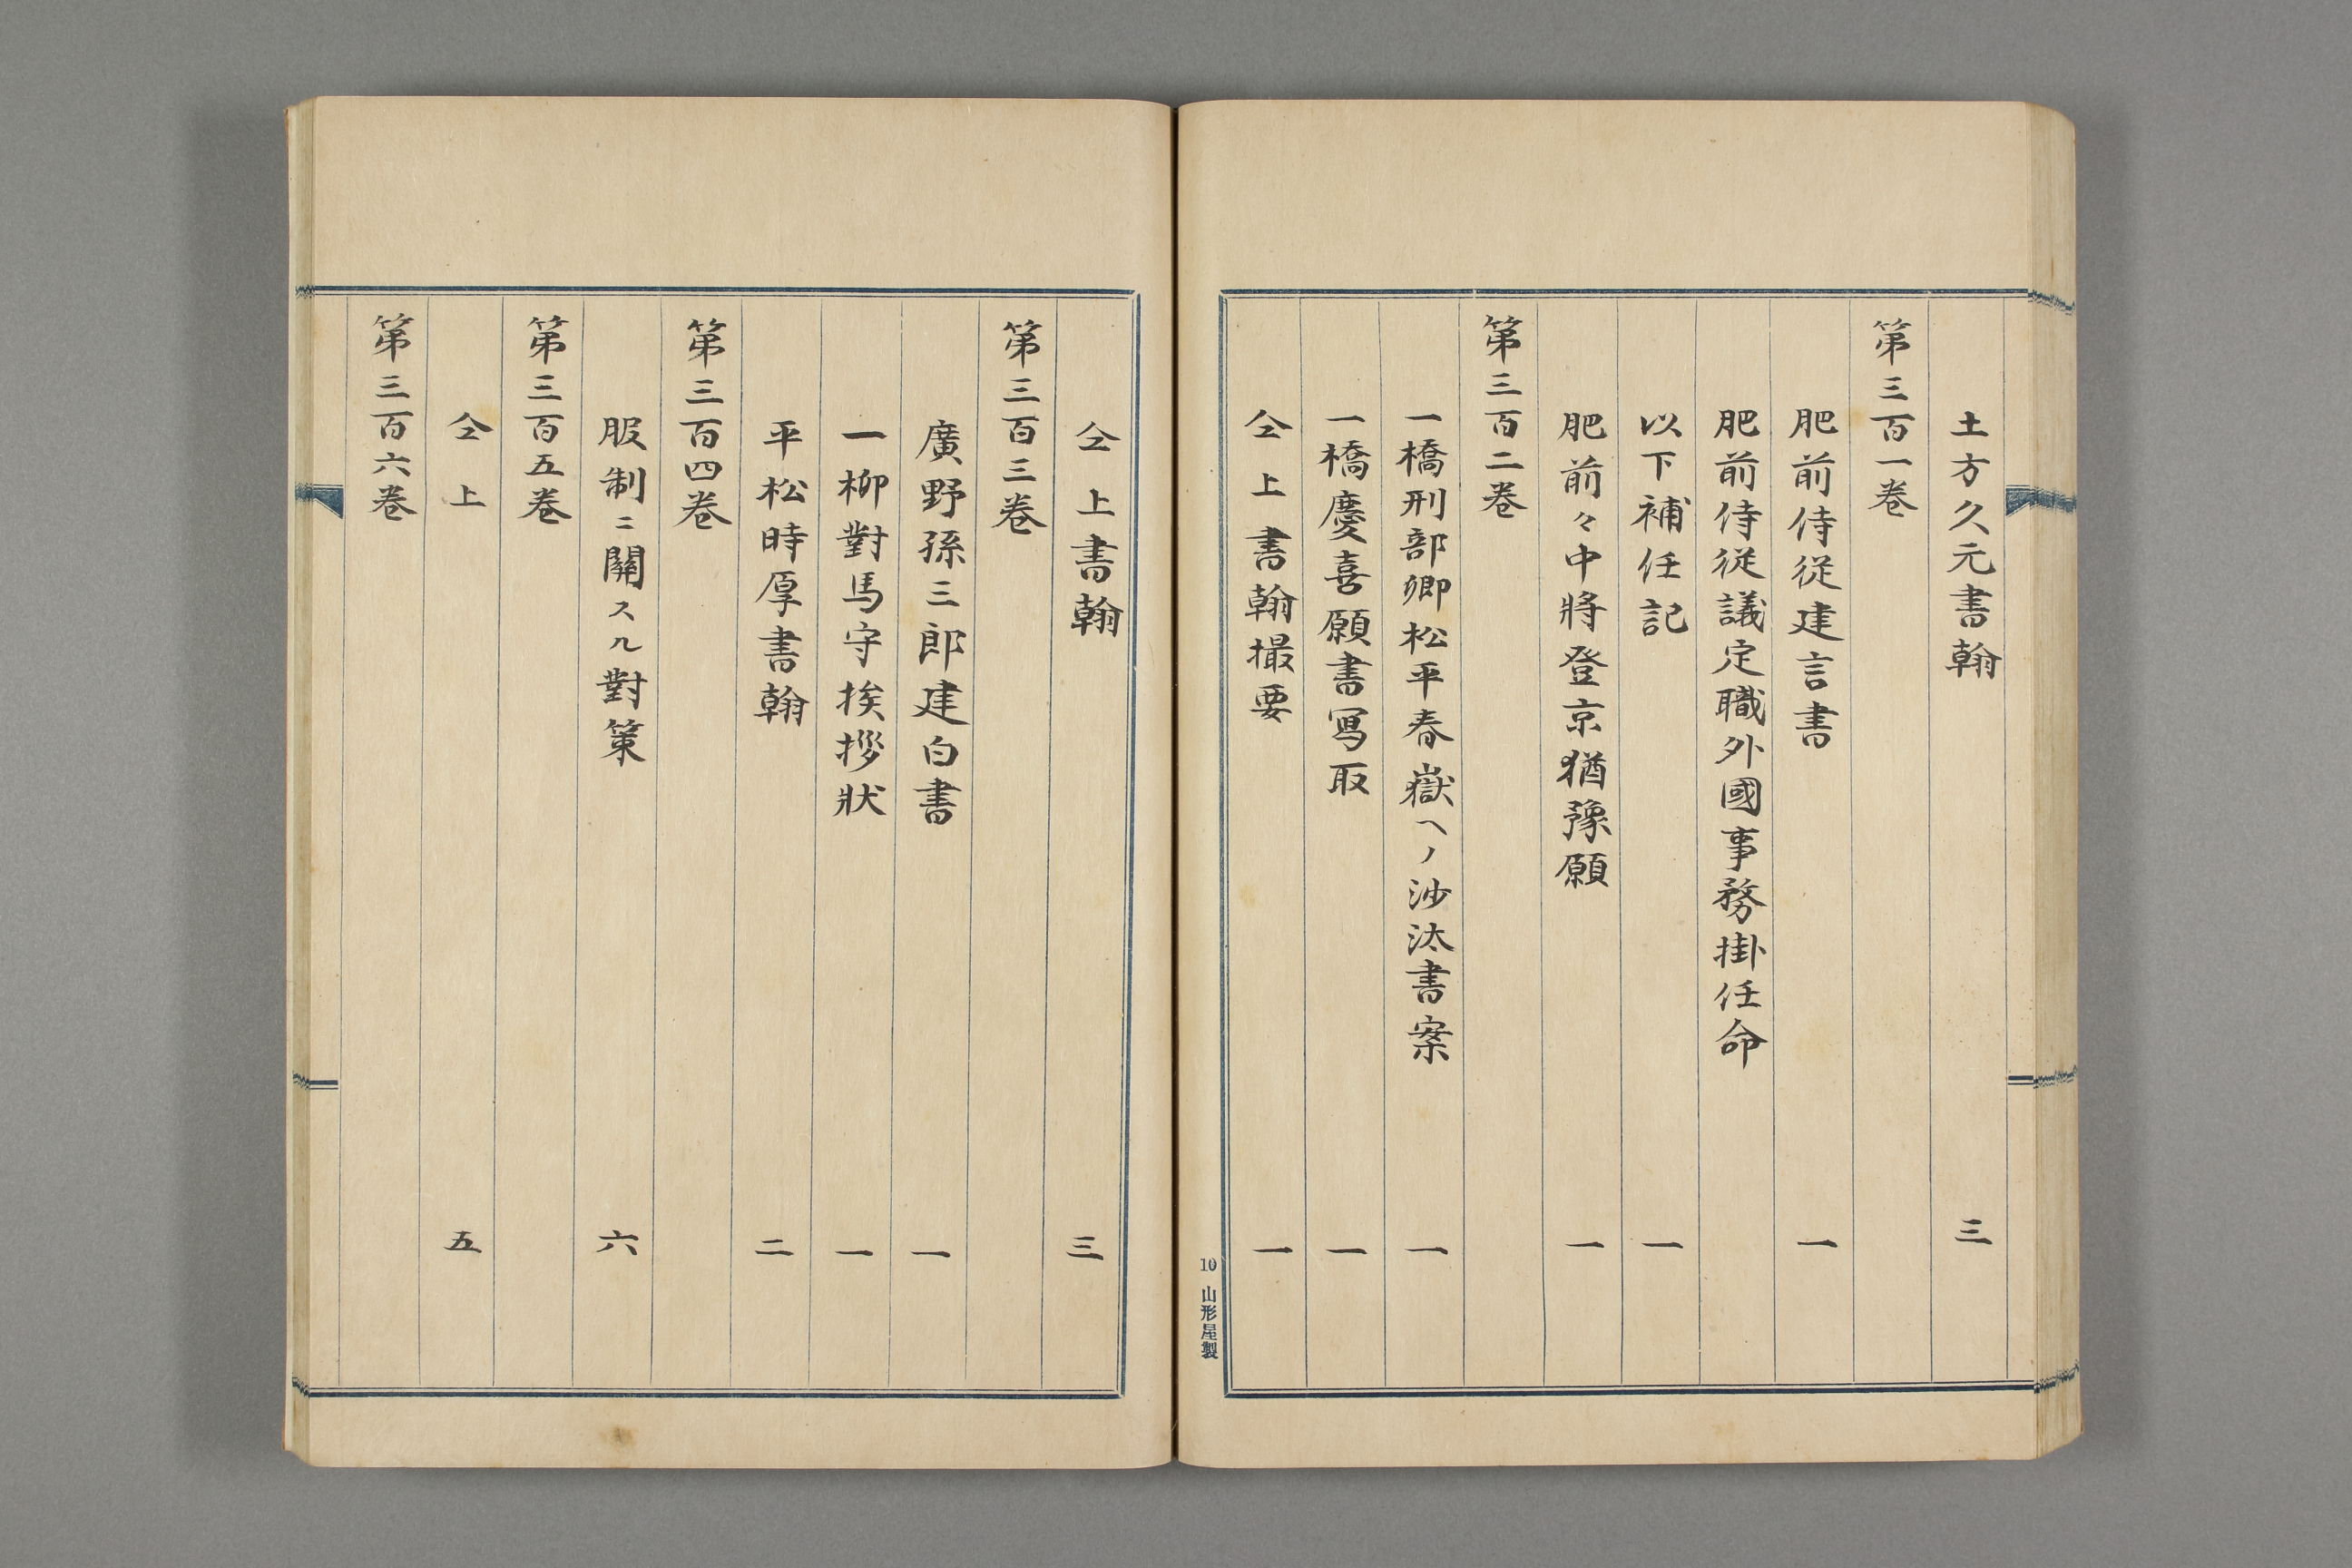 土方久元書翰 三
第三百一卷
肥前侍従建言書 一
肥前侍従議定職外國事務掛任命
以下補任記 一
肥前々中將登京猶豫願 一
第三百二卷
一橋刑部卿松平春嶽ヘノ沙汰書案 一
一橋慶喜願書写取 一
仝上書翰撮要 一
10 山形屋製
仝上書翰 三
第三百三卷
廣野孫三郎建白書 一
一柳對馬守挨拶狀 一
平松時厚書翰 二
第三百四卷
服制ニ關スル對策 六
第三百五卷
仝上 五
第三百六卷